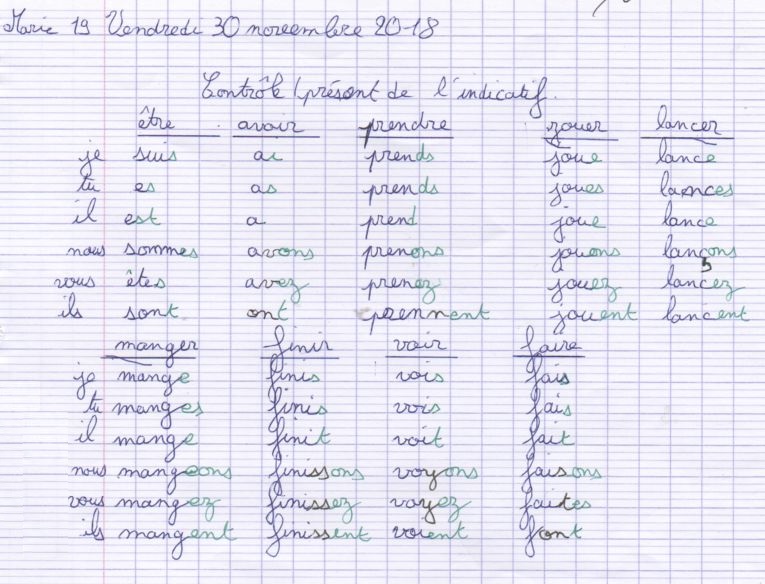 Marie 19 Vendredi 30 novembre 2018
Contrôle présent de l'indicatif.
être avoir prendre jouer lancer
je suis ai prends joue lance
tu es as prends joues lances
il est a prend joue lance
nous sommes avons prenons jouons lançons
vous êtes avez prenez jouez lancez
ils sont ont prennent jouent lancent
manger finir voir faire
je mange finis vois fais
tu manges finis vois fais
il mange finit voit fait
nous mangeons finissons voyons faisons
vous mangez finissez voyez faites
ils mangent finissent voient font